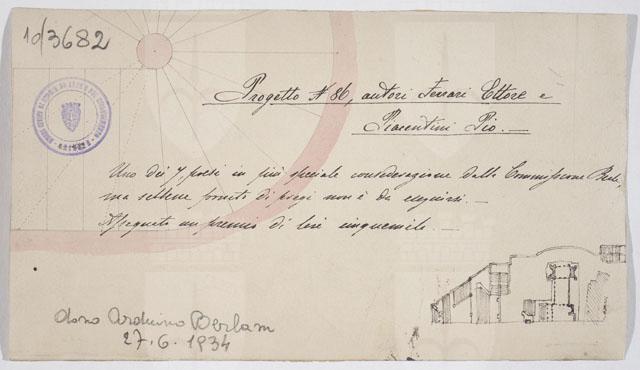 10/3682
Progetto N 86, autori Ferrari Ettore e
Piacentini Pio. —
Uno dei 7 presi in più speciale considerazione dalla Commissione Reale,
ma sebbene fornito di pregi non è da eseguirsi. —
Assegnato un premio di lire cinquemila. —
dono Arduino Berlam
27.6.1934